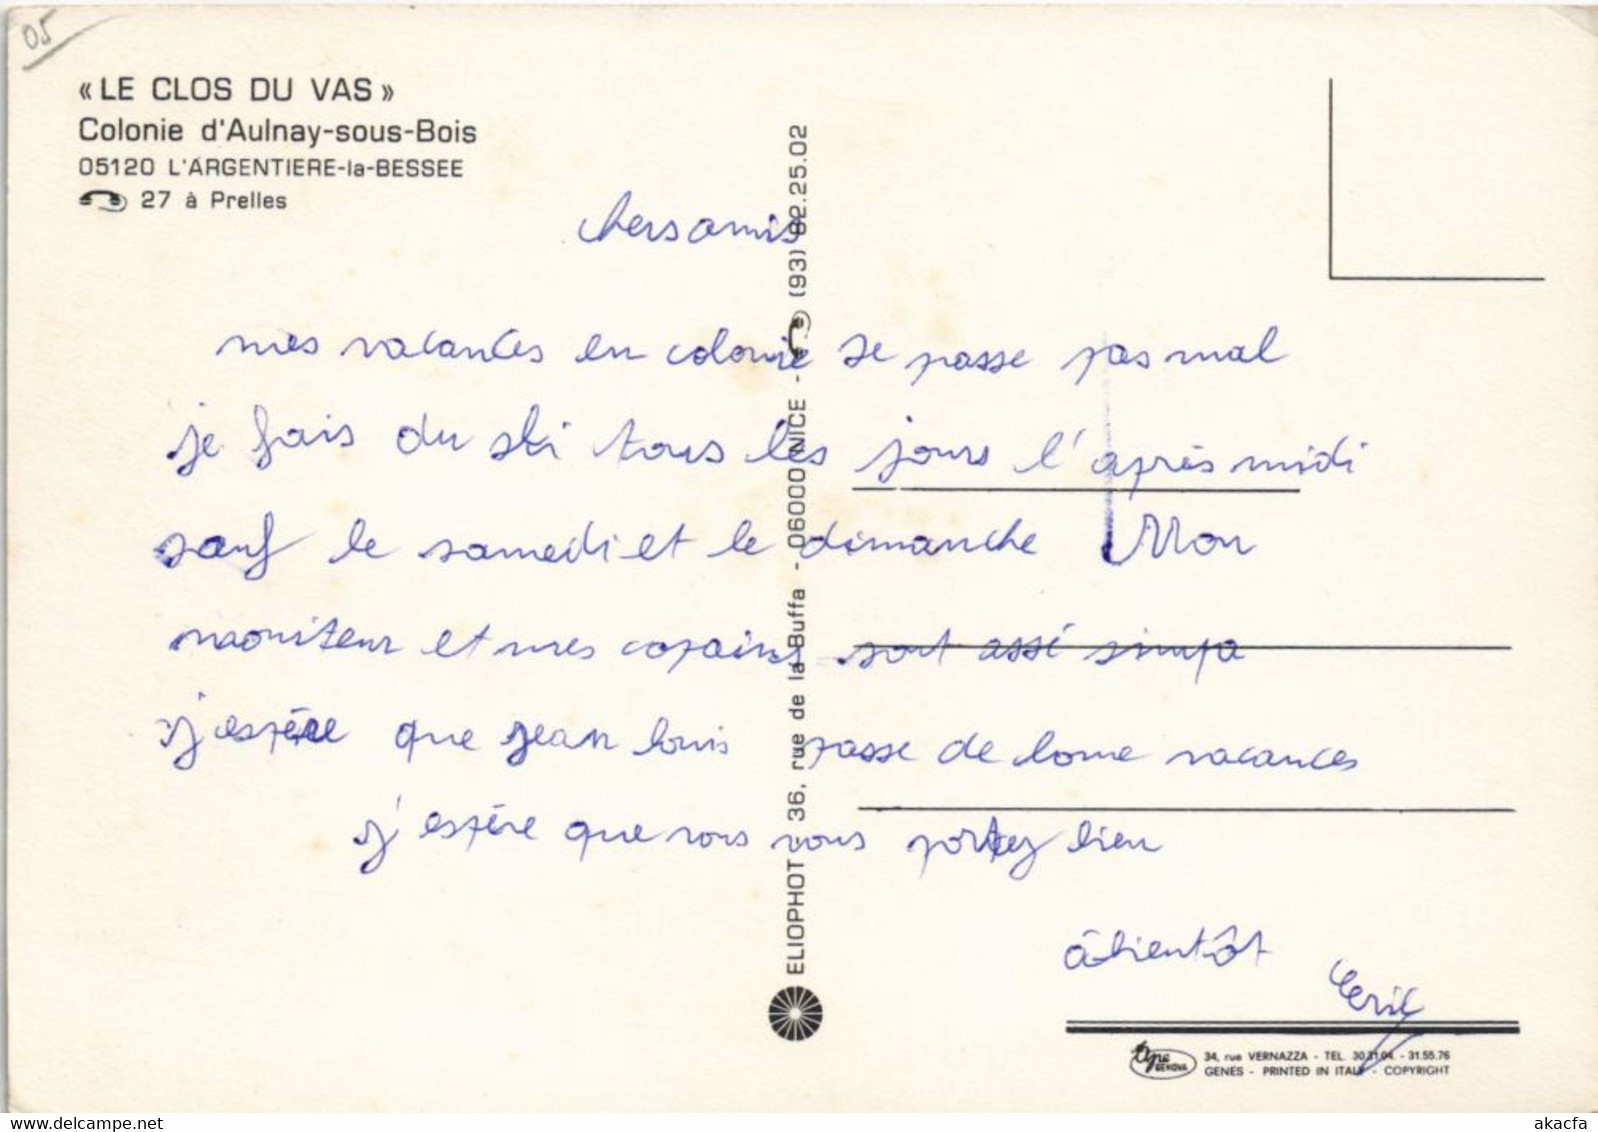 05
« LE CLOS DU VAS »
Colonie d'Aulnay-sous-Bois
05120 L'ARGENTIERE-la-BESSEE
27 à Prelles
chers amis
mes vacances en colonie se passe pas mal
je fais du ski tous les jours l'après midi
sauf le samedi et le dimanche Mon
moniteur et mes copains sont assé simpa
j'espère que jean louis passe de bonne vacances
j'espère que vous vous portez bien
à bientôt Eric
ELIOPHOT - 36, rue de la Buffa - 06000 NICE - (93) 82.25.02
Ape GENOVA
34, rue VERNAZZA - TEL. 30.31.04. - 31.55.76
GENES - PRINTED IN ITALY - COPYRIGHT
www.delcampe.net
akacfa